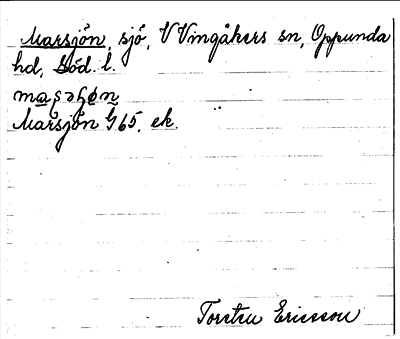 Marsjön, sjö, V Vingåkers sn, Oppunda
hd, Söd. l.
Marsjön G 65, ek.
Torsten Ericsson